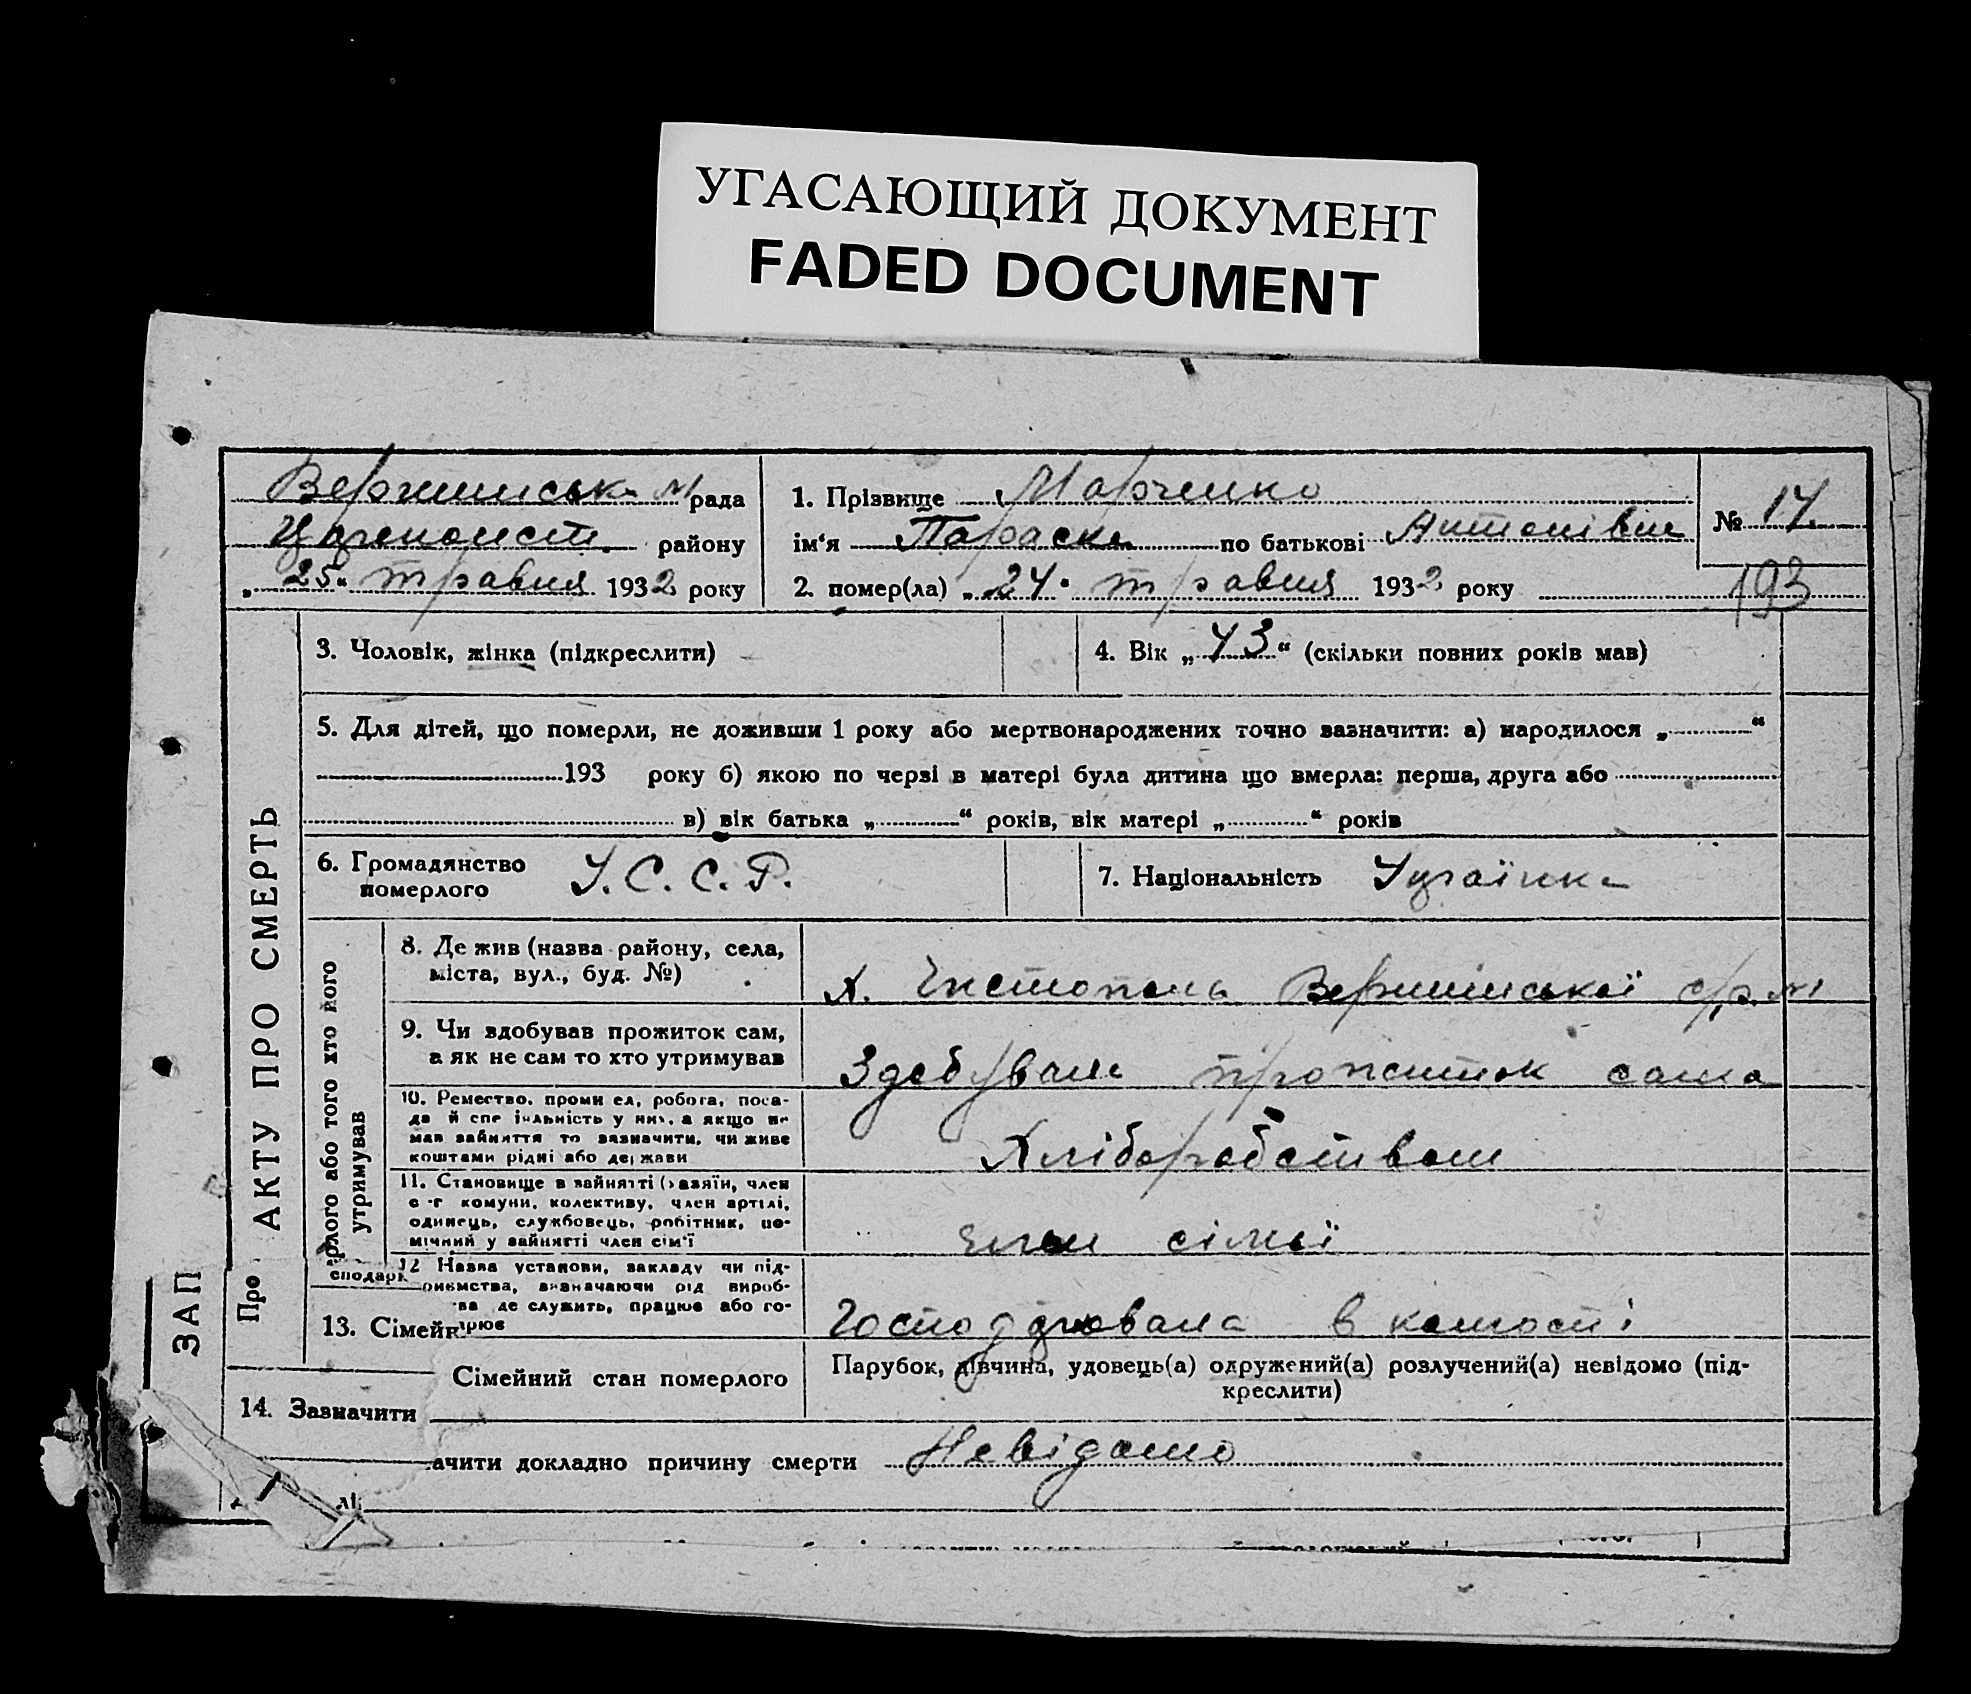 УГАСАЮЩИЙ ДОКУМЕНТ
FADED DOCUMENT
рада
району
„ 25 “ травня 1932 року
1. Прізвище Марченко
ім‘я Параска по батькові Антонівна
2. помер(ла) „ 24 “ травня 1932 року
№ 17
193
ЗАП
АКТУ ПРО СМЕРТЬ
3. Чоловік, жінка (підкреслити)
4. Вік „ 43 “ (скільки повних років мав)
5. Для дітей, що померли, не доживши 1 року або мертвонароджених точно вазначити: а) народилося „ “
193 року б) якою по черзі в матері була дитина що вмерла: перша, друга або
в) вік батька „ “ років, вік матері „ “ років
6. Громадянство
померлого
У. С. С. Р.
7. Національність Українка
Про
рлого або того хто його
утримував
8. Де жив (назва району, села,
міста, вул., буд. №)
х. Вершинської с/р.
9. Чи здобував прожиток сам,
а як не сам то хто утримував
Здобувала прожиток сама
10. Ремество, промисел, робота, поса-
да й спеціяльність у них, а якщо не
мав зайняття то зазначити, чи живе
коштами рідні або держави
Хліборобством
11. Становище в зайнятті (хазяїн, член
с-г комуни, колективу, член артілі,
одинець, службовець, робітник, по-
мічний у зайнятті член сім'ї
член сімьї
сподарк
12 Назва установи, закладу чи під-
риємства, визначаючи рід вироб-
ва де служить, працює або го-
рює
Господарювала в
13. Сімейн
Сімейний стан померлого
Парубок, дівчина, удовець(а) одружений(а) розлучений(а) невідомо (під-
креслити)
14. Зазначити
ачити докладно причину смерти Невідомо